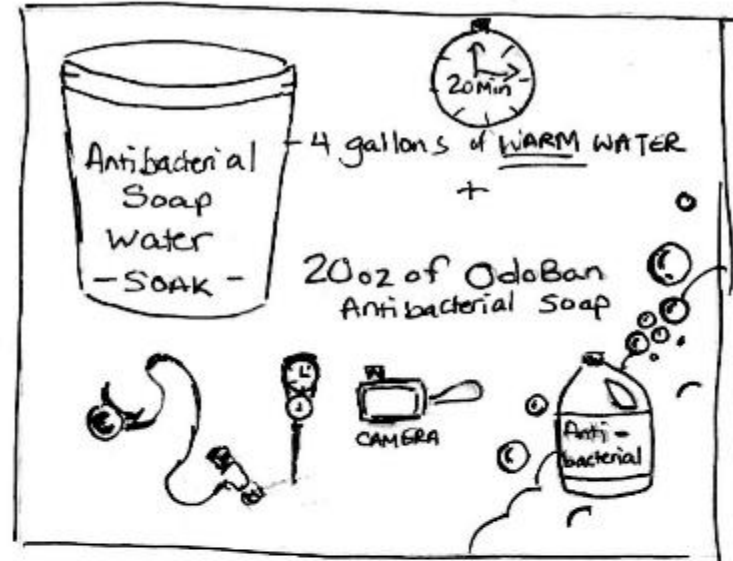 20 Min
Antibacterial
Soap
Water
- SOAK -
- 4 gallons of WARM WATER
+
20oz of OdoBan
Antibacterial Soap
CAMERA
Anti-
bacterial